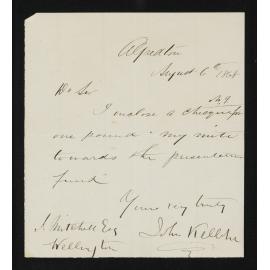 Alfredton
August 6th 1868
Dr Sir
I enclose a cheque for
one pound my mite
towards the presentation
fund
Yours very truly
J. Mitchell Esq
Wellington
John